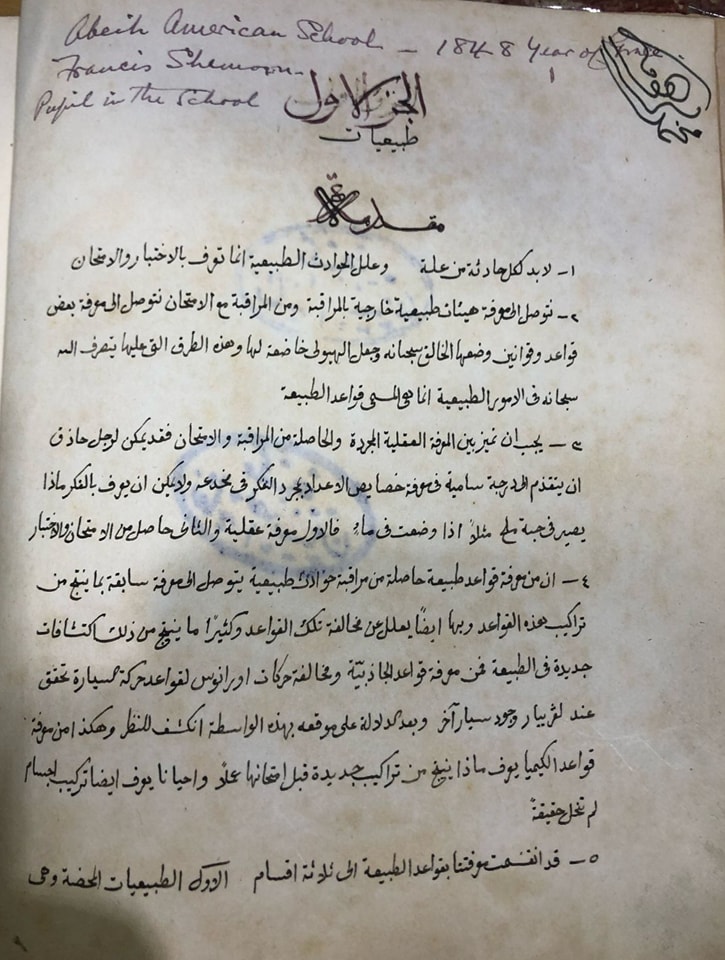 Abeih American School - 1848 Year of Grace
Francis Shemoon
Pupil in the School
الجزء الاول
طبيعيات
مقدمة
١- لا بد لكل حادثة من علة وعلل الحوادث الطبيعية انما تعرف بالاختبار والامتحان
٢- نتوصل الى معرفة هيئات طبيعية خارجية بالمراقبة ومن المراقبة مع الامتحان نتوصل الى معرفة بعض
قواعد وقوانين وضعها الخالق سبحانه وجعل الهيولى خاضعة لها وهذه الطرق التى عليها يتصرف الله
سبحانه فى الامور الطبيعية انما هى المسمى قواعد الطبيعة
٣- يجب ان نميز بين المعرفة العقلية المجردة والحاصلة من المراقبة والامتحان فقد يمكن لرجل حاذق
ان يتقدم الى درجة سامية فى معرفة خصايص الاعداد بمجرد الفكر فى مخدعه ولا يمكن ان يعرف بالفكر ماذا
يصير فى حبة ملح مثلاً اذا وضعت فى ماء فالاول معرفة عقلية والثانى حاصل من الامتحان والاختبار
٤- ان من معرفة قواعد طبيعة حاصلة من مراقبة حوادث طبيعية يتوصل الى معرفة سابقة بما ينتج من
تراكيب هذه القواعد وبها ايضًا يعلل عن مخالفة تلك القواعد وكثيرًا ما ينتج من ذلك اكتشافات
جديدة فى الطبيعة فمن معرفة قواعد الجاذبيّة ومخالفة حركات اورانوس لقواعد حركة السيارة تحقق
عند لڤريار وجود سيار آخر وبعد الدلالة على موقعه بهذه الواسطة انكشف للنظر وهكذا من معرفة
قواعد الكيميا يعرف ماذا ينتج من تراكيب جديدة قبل امتحانها عملاً واحيانا يعرف ايضا تركيب اجسام
لم تنحل حقيقةً
٥- قد انقسمت معرفتنا بقواعد الطبيعة الى ثلاثة اقسام الاول الطبيعيات المحضة وهى